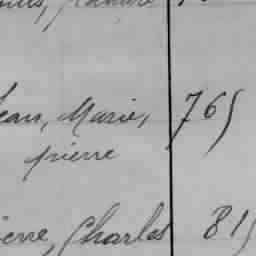 ean, Marie, 765
pierre
ierre, Charles 815